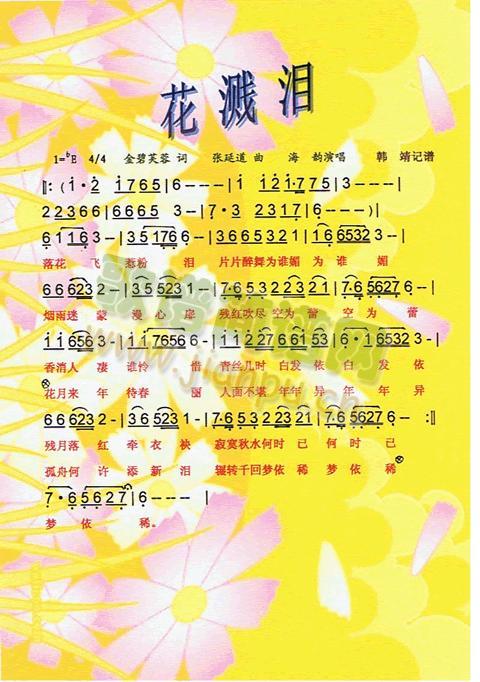 花溅泪
1=♭E 4/4 金碧芙蓉 词 张廷道 曲 海 韵演唱 韩 靖记谱
‖:(i·2 i765|6---|i i2i·775|3---|
223666|66653--|7·3 2317|6---)|
6i i63-|35176 6-|356532321|i66532 3-|
落花 飞 愁粉 泪 片片醉舞为谁媚 为 谁 媚
666232-|355231-|7·653221|7·65627 6-|
烟雨迷 蒙 漫心扉 残红吹尽空为 蕾 空 为 蕾
ii6563-|ii76566-|i22766153|6·i65323-|
香消人 凄 谁怜 惜 青丝几时 白发 依 白 发 依
花月来 年 待春 丽 人面不堪 年年 异 年 年 异
666232-|35231-|7·653221|7·65627 6-:‖
残月落 红 牵衣袂 寂寞秋水何时 已 何 时 已
孤舟何 许 添新 泪 辗转千回梦依 稀 梦 依 稀
7·65627|6---|
梦 依 稀。